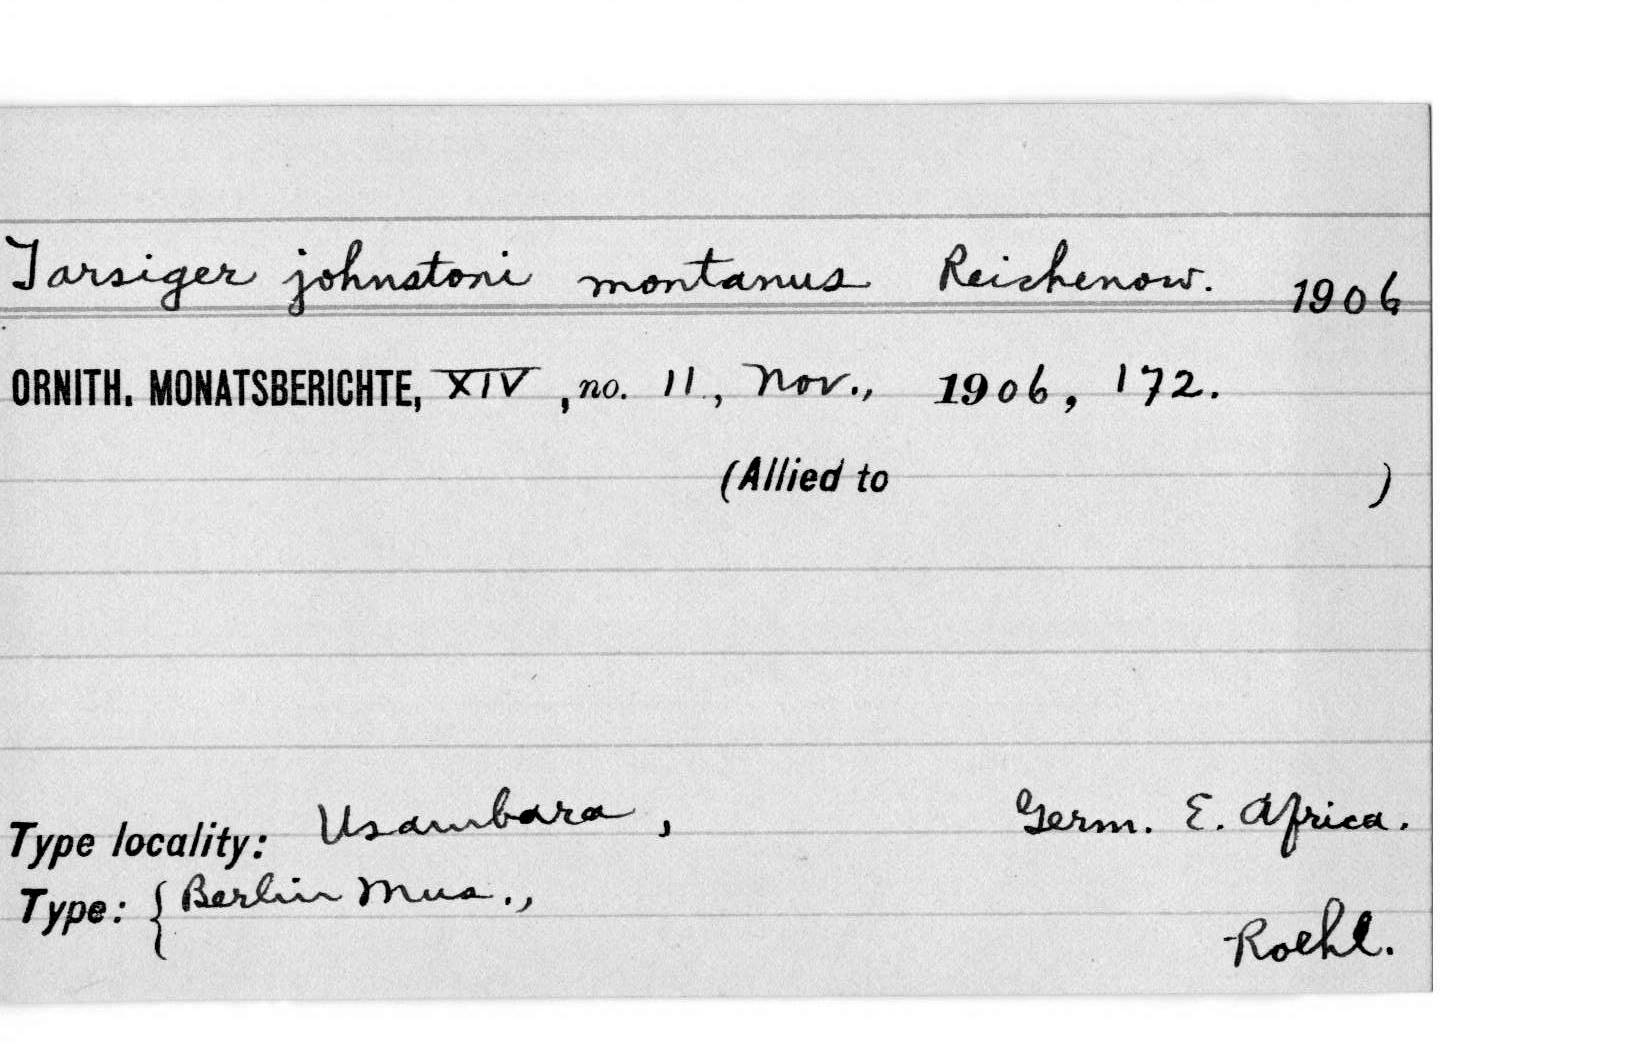 Tarsiger johnstoni montanus Reichenow. 1906
ORNITH. MONATSBERICHTE, XIV, no. 11, Nov., 1906, 172.
(Allied to )
Type locality: Usambara, Germ. E. Africa.
Type: { Berlin Mus.,
Roehl.